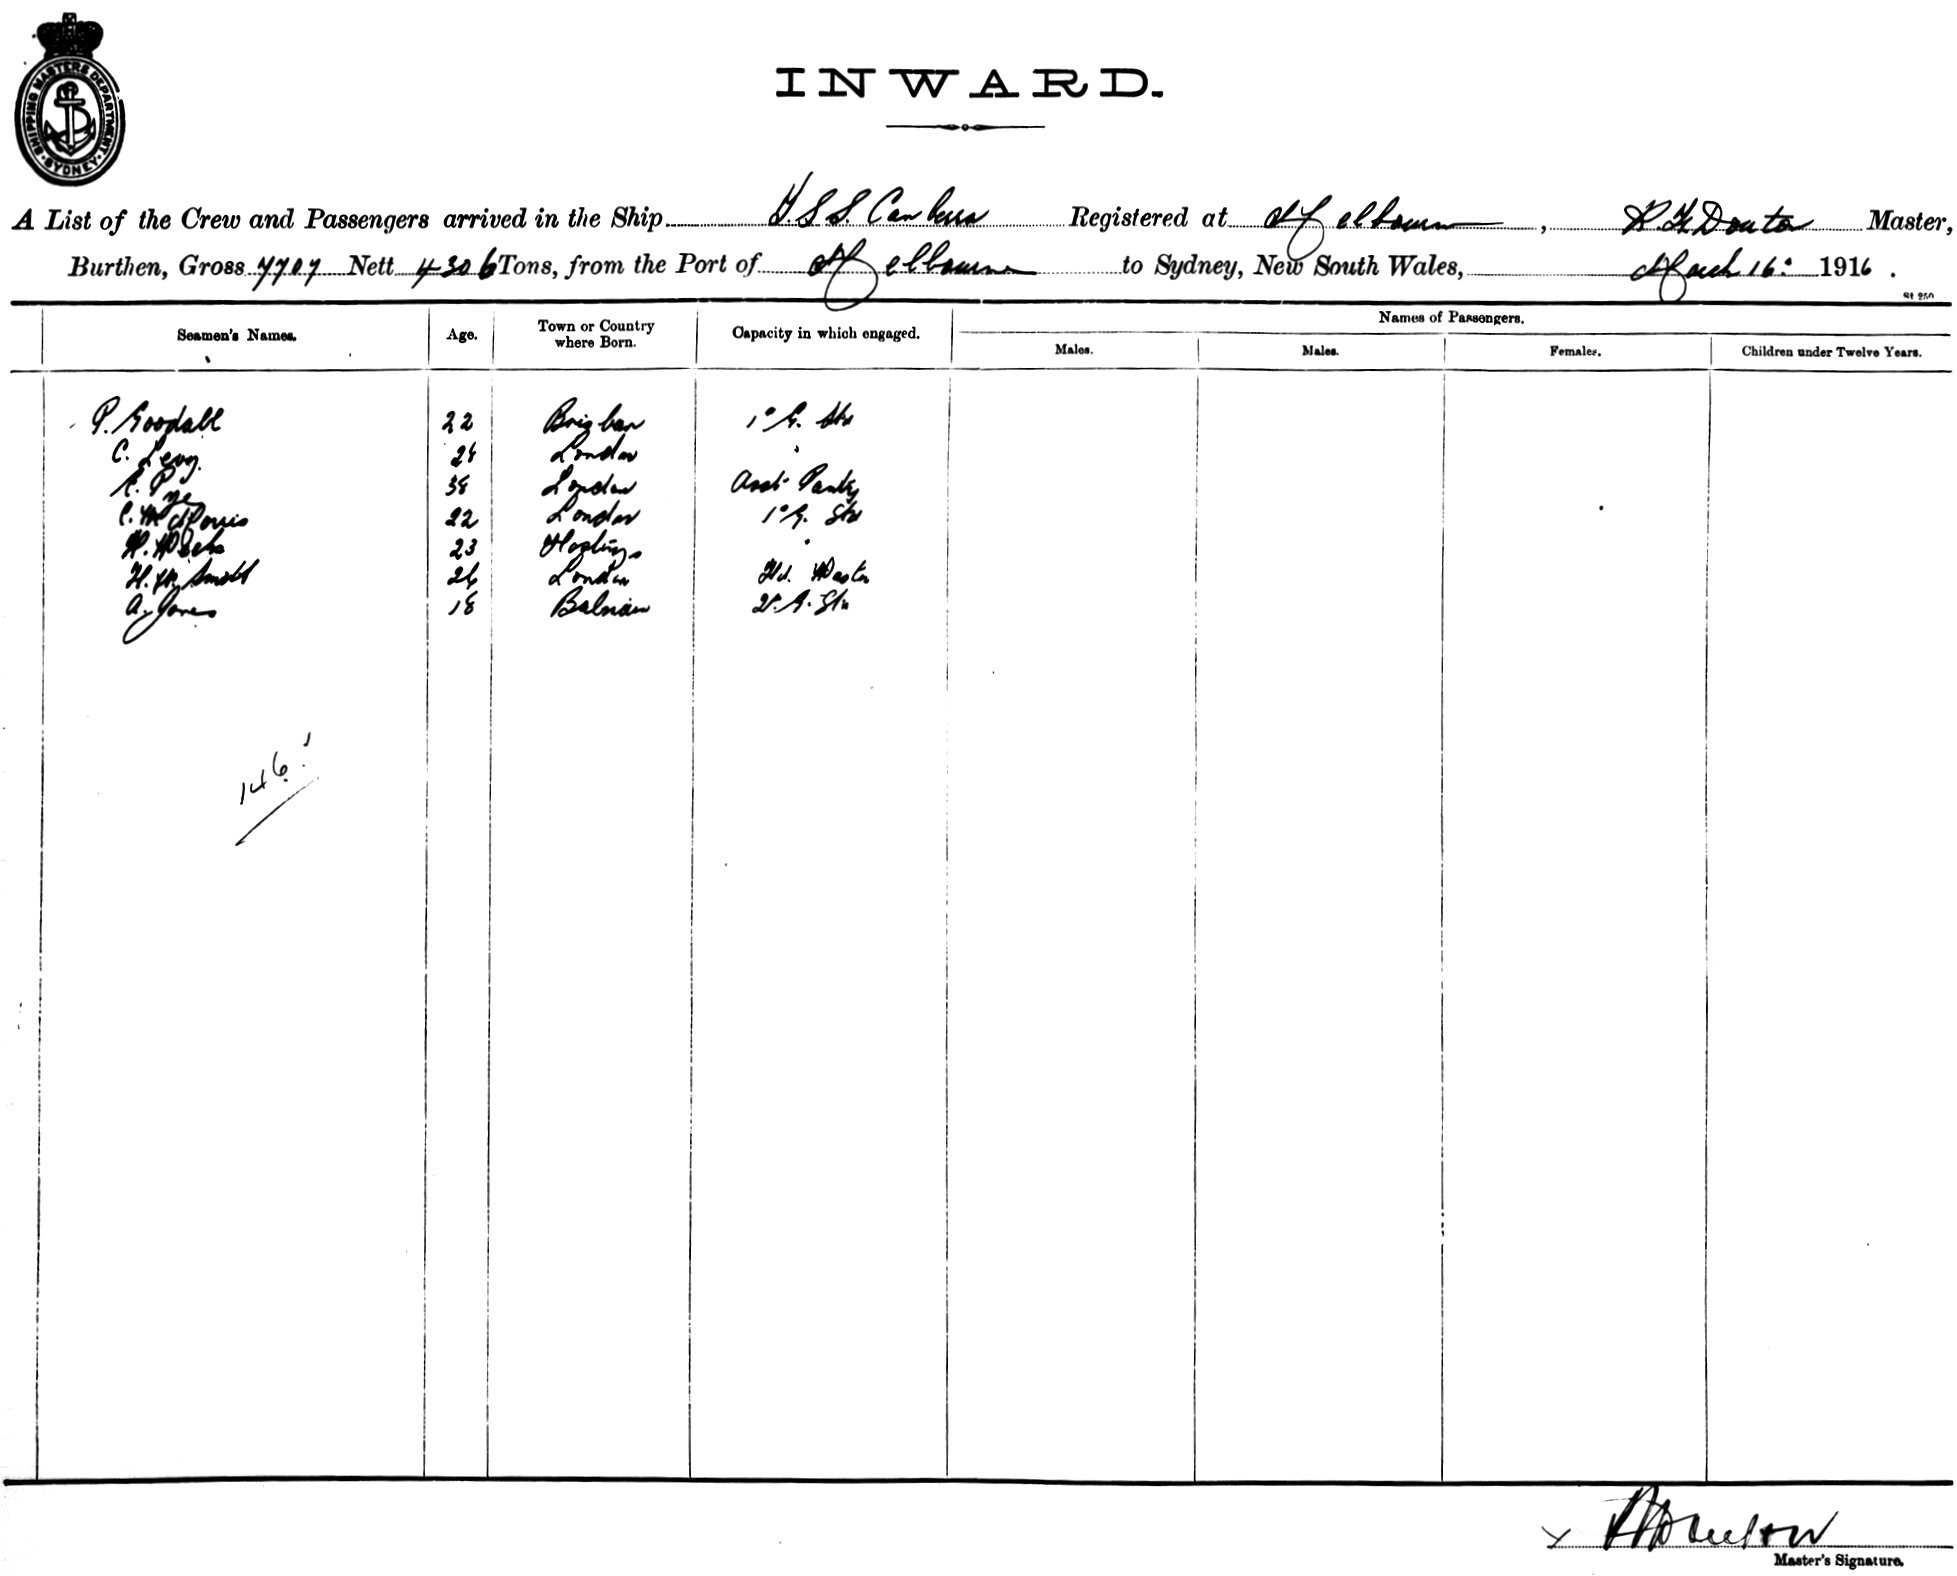 SHIPPING MASTERS DEPARTMENT. SYDNEY.
INWARD.
A List of the Crew and Passengers arrived in the Ship T.S.S. Canberra Registered at Melbourne, Master,
Burthen, Gross 7707 Nett 4306 Tons, from the Port of Melbourne to Sydney, New South Wales, March 16: 1916.
Seamen's Names. Age. Town or Country where Born. Capacity in which engaged. Names of Passengers.
Males. Males. Females. Children under Twelve Years.
P. Goodall 22 Brisban 1° G. Std
C. Levy. London
E. Pye 38 London Asst Pantry
C. W. Morris 22 London 1° G. Std
W. Weeks 23 Hastings
H. W. Smith London Hd. Waiter
A. Jones 18 Balmain 2d. G. Std
146
Master's Signature.